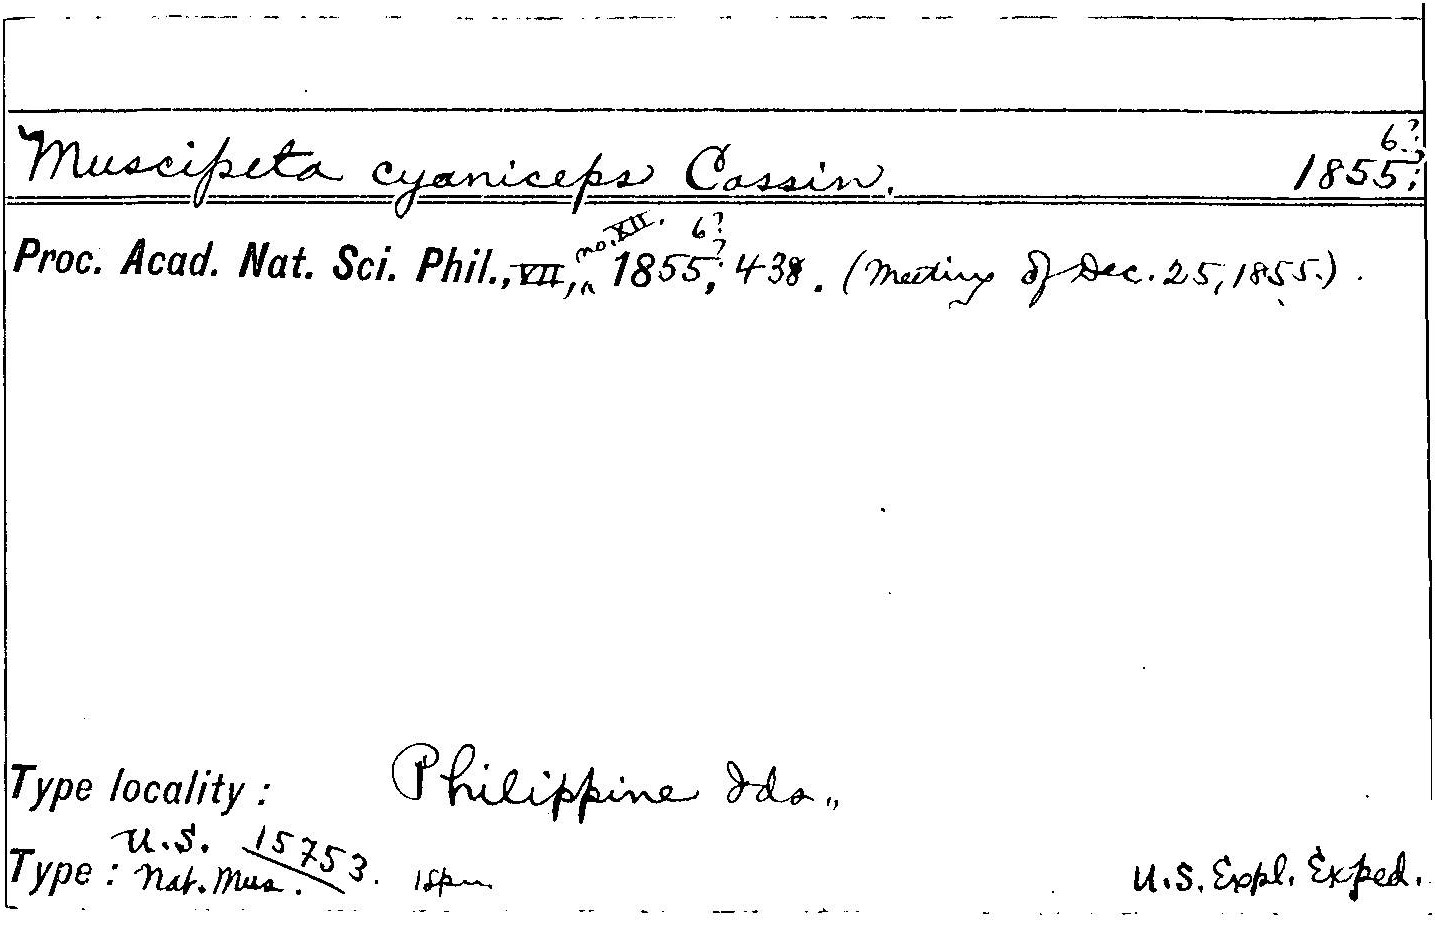 6?
Muscipeta cyaniceps Cassin. 1855;
no. XII. 6?
Proc. Acad. Nat. Sci. Phil., VII, ^ 1855?; 438. (Meeting of Dec. 25, 1855.).
Type locality: Philippine Ids.,
U.S. 15753.
Type: Nat. Mus. 1 spm. U.S. Expl. Exped.